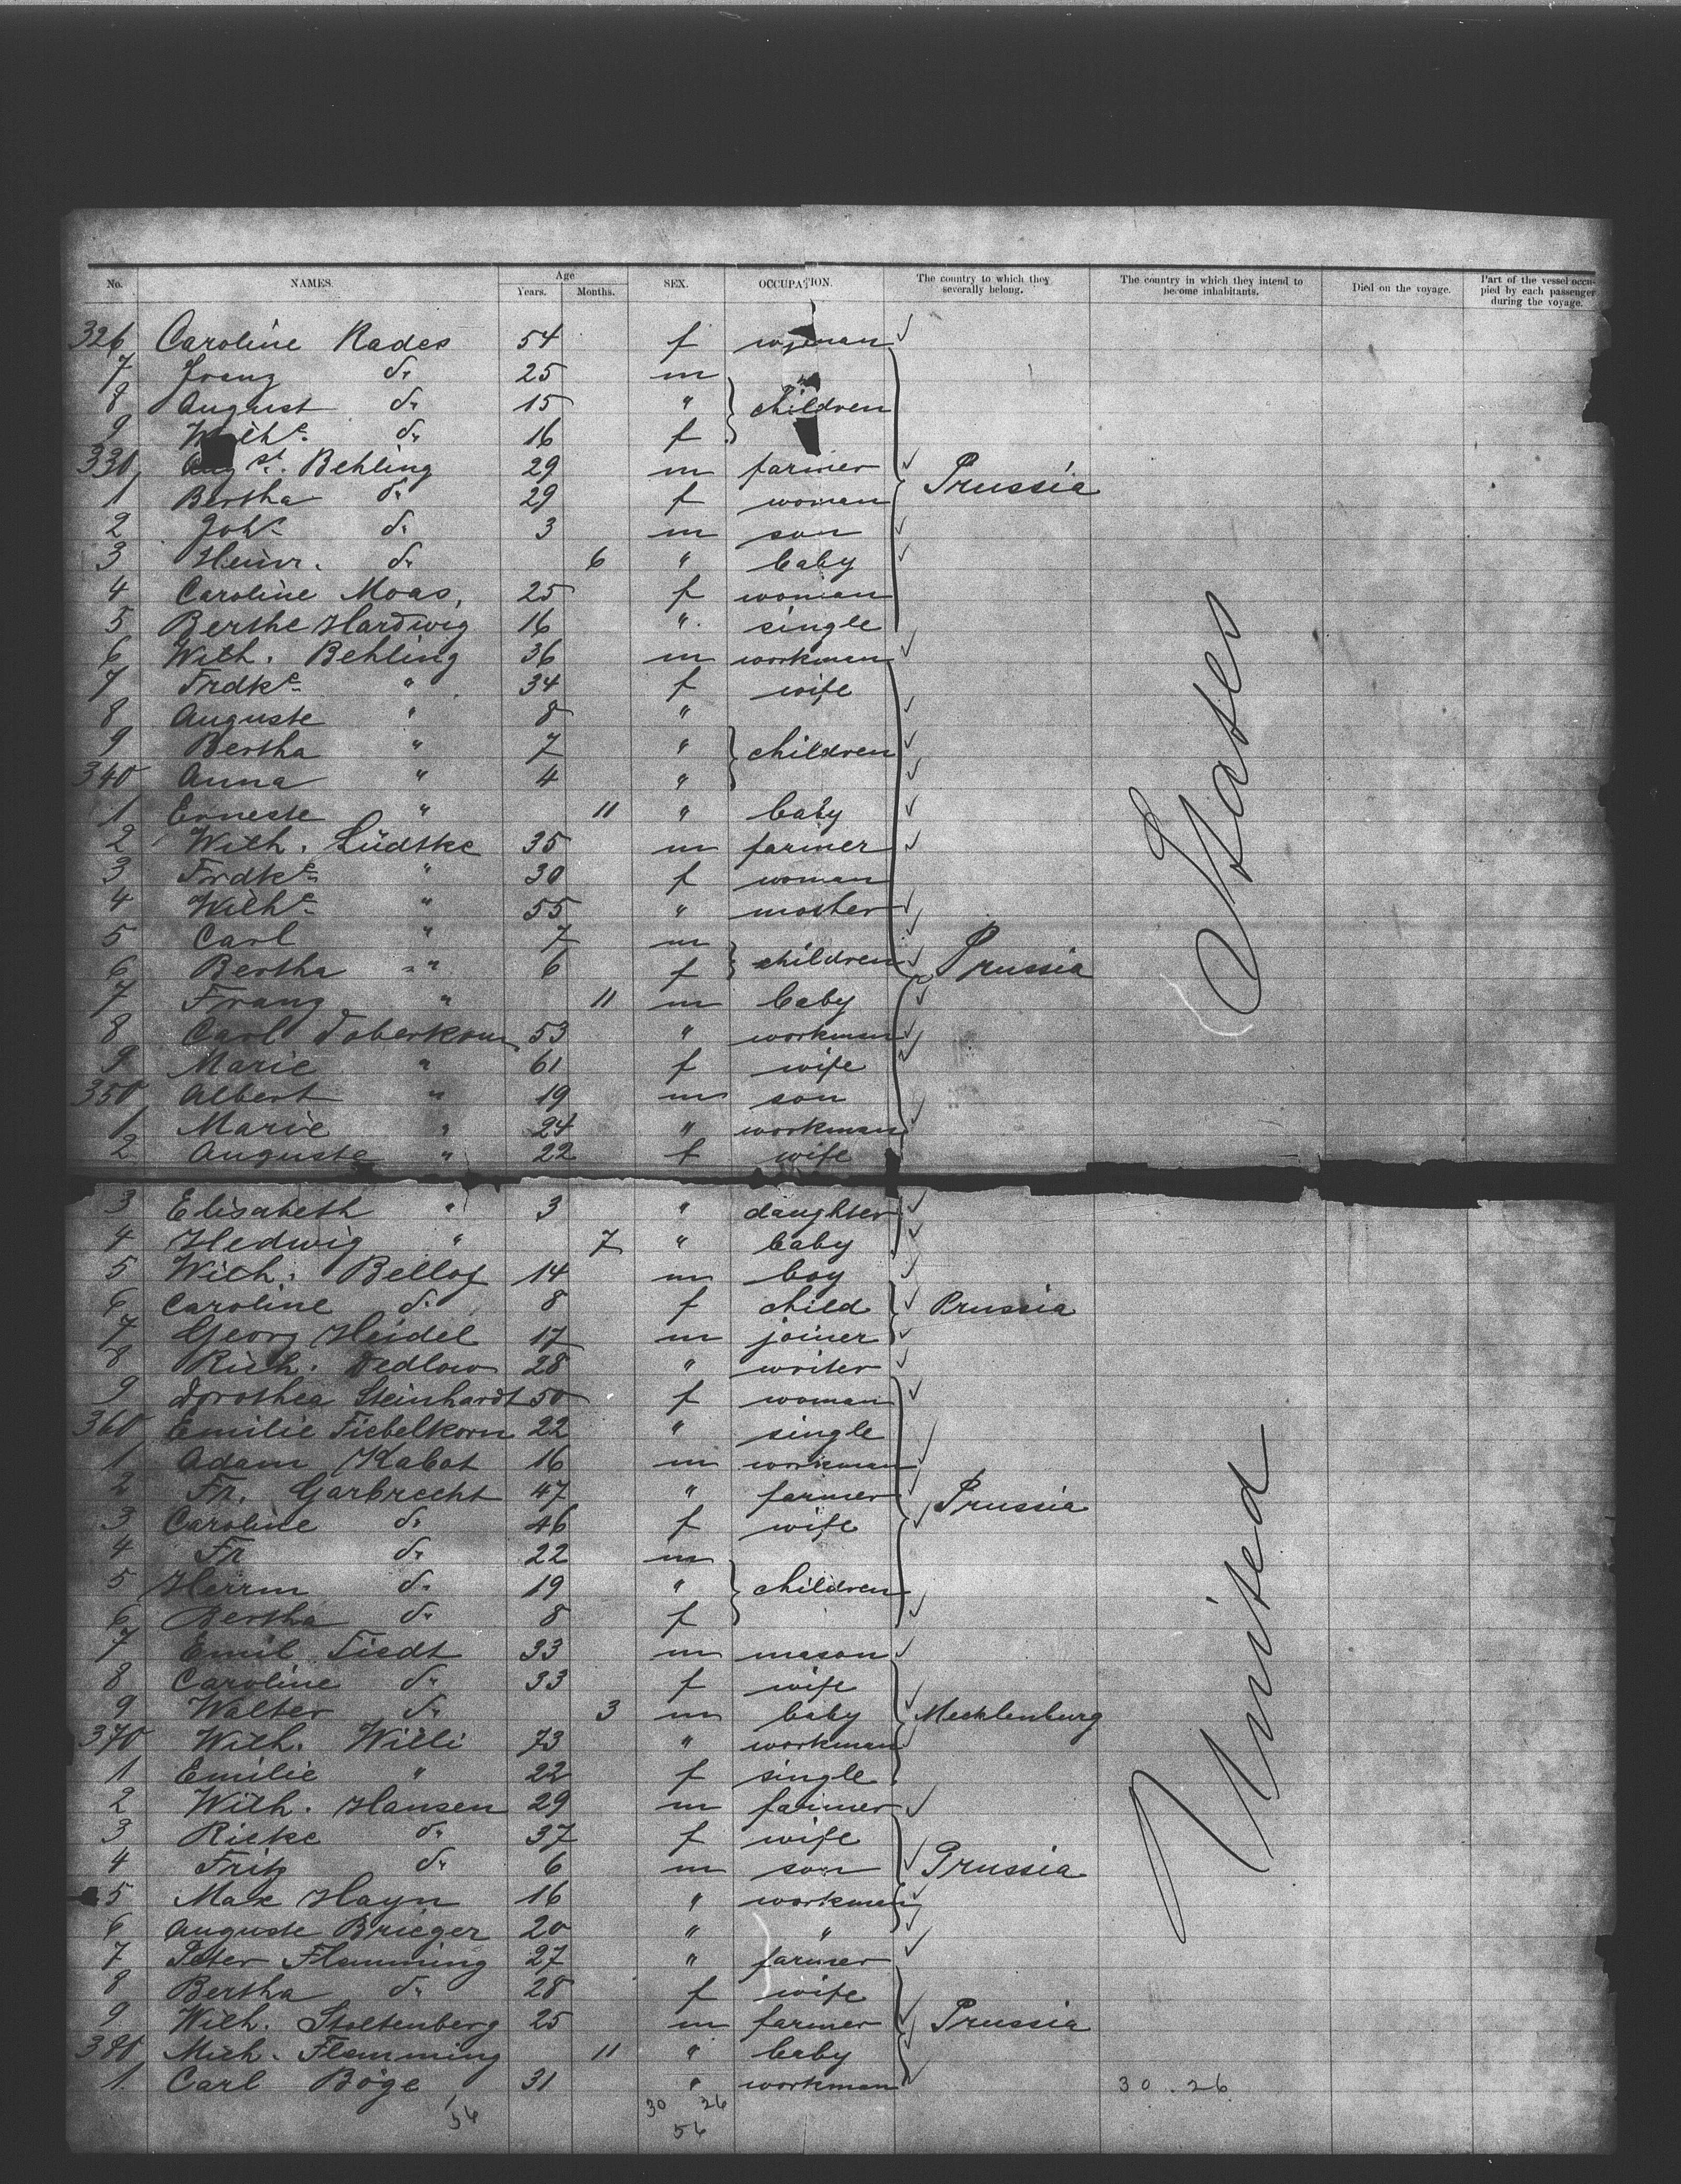 No. NAMES. Age Years. Months. SEX. OCCUPATION. The country to which they severally belong. The country in which they intend to become inhabitants. Died on the voyage. Part of the vessel occupied by each passenger during the voyage.
326 Caroline Rades 54 f woman
7 Franz do 25 m
8 August do 15 " children
9 Wilhe do 16 f
330 Augst. Behling 29 m farmer Prussia
1 Bertha do 29 f woman
2 Johs do 3 m son
3 Heinr. do 6 " baby
4 Caroline Moas, 25 f woman
5 Berthe Hardwig 16 " single
6 Wilh. Behling 36 m workman
7 Frdke " 34 f wife
8 Auguste " 8 "
9 Bertha " 7 " children
340 Anna " 4 "
1 Erneste " 11 " baby
2 Wilh. Lüdtke 35 m farmer
3 Frdke " 30 f woman
4 Wilhe " 55 " mother
5 Carl " 7 m
6 Bertha " 6 f children Prussia
7 Franz " 11 m baby
8 Carl Doberkow 53 " workman
9 Marie " 61 f wife
350 Albert " 19 m son
1 Marie " 24 " workman
2 Auguste " 22 f wife
3 Elisabeth " 3 " daughter
4 Hedwig " 7 " baby
5 Wilh. Bellof 14 m boy
6 Caroline do 8 f child Prussia
7 Georg Heidel 17 m joiner
8 Rich. Dedlow 28 " writer
9 Dorothea Steinhardt 50 f woman
360 Emilie Fiebelkorn 22 " single
1 Adam Kabat 16 m workman
2 Fr. Garbrecht 47 " farmer Prussia
3 Caroline do 46 f wife
4 Fr do 22 m
5 Herrm do 19 " children
6 Bertha do 8 f
7 Emil Tiedt 33 m mason
8 Caroline do 33 f wife
9 Walter do 3 m baby Mecklenburg
370 Wilh. Willi 73 " workman
1 Emilie " 22 f single
2 Wilh. Hansen 29 m farmer
3 Rieke do 37 f wife
4 Fritz do 6 m son Prussia
5 Max Hayn 16 " workman
6 Auguste Brieger 20 " "
7 Peter Flemming 27 " farmer
8 Bertha do 28 f wife
9 Wilh. Stoltenberg 25 m farmer Prussia
380 Mich. Flemming 11 " baby
1. Carl Böge 31 " workman
United States
30 . 26
56 30 26
56